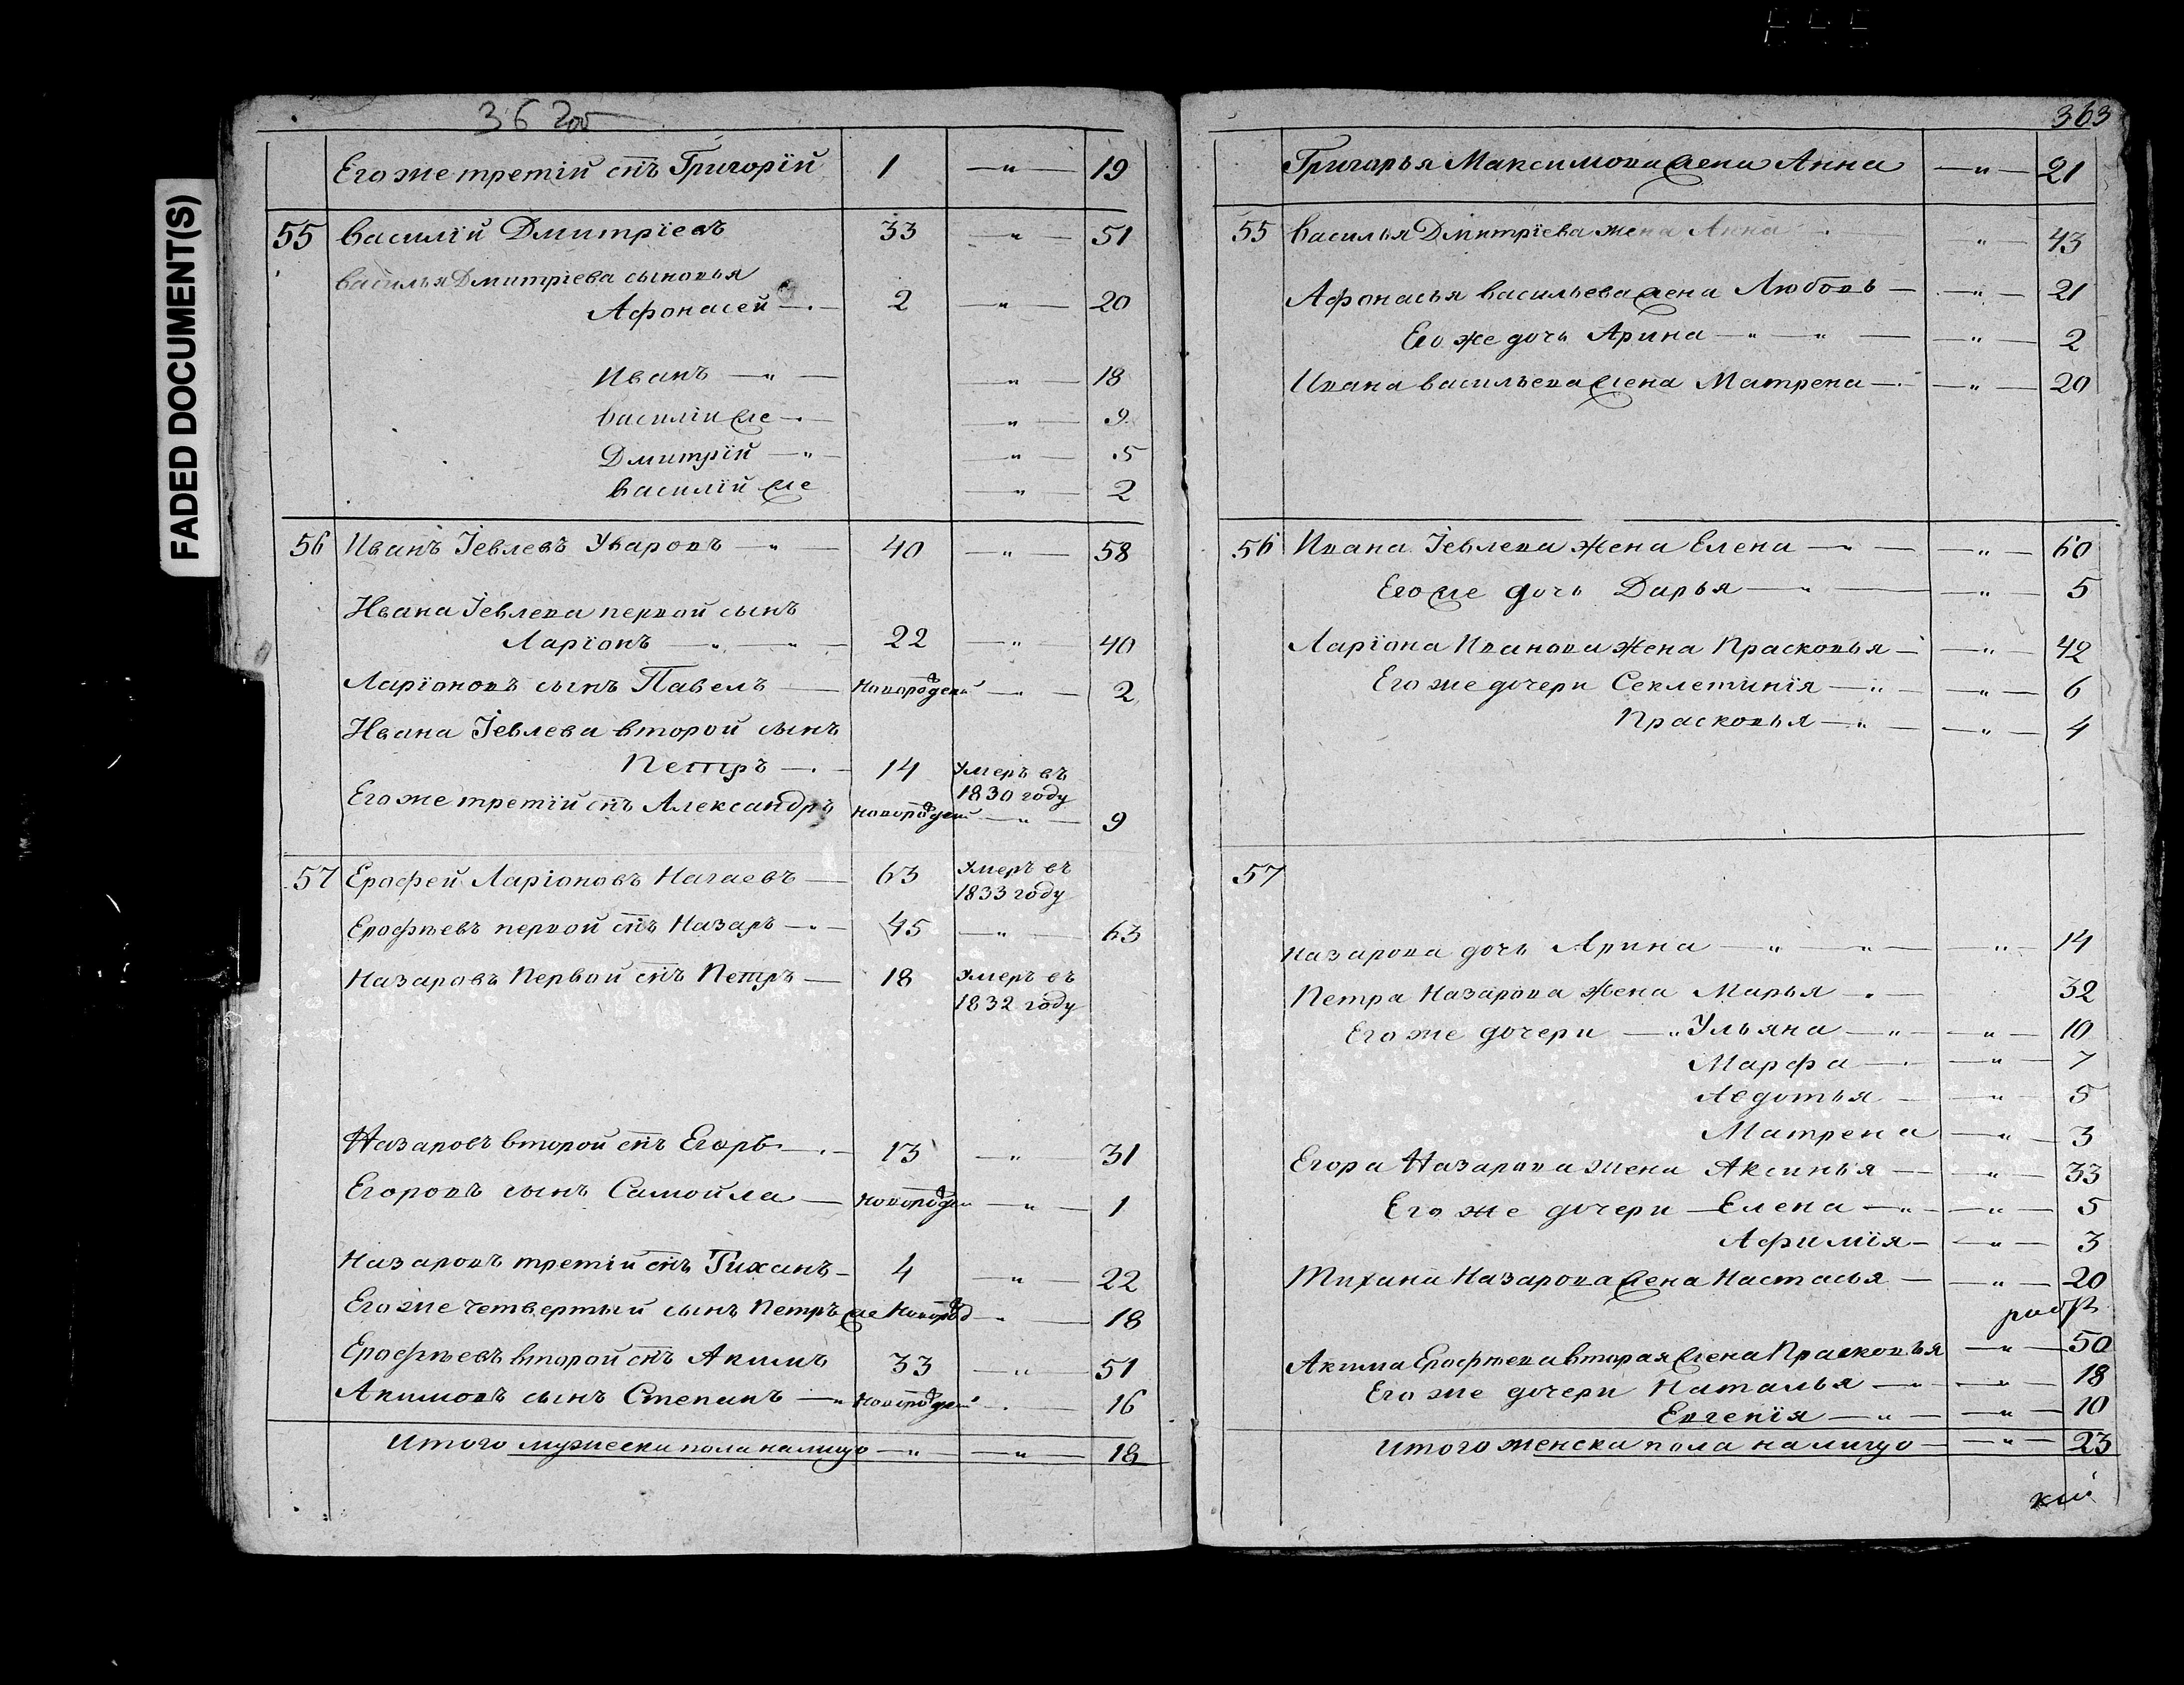 FADED DOCUMENT(S)
362об
Его же третiй снъ Григорïй 1 — " — 19
55 Василïй Дмитрïевъ 33 — " — 51
Василья Дмитрïева сыновья
Афонасей — " — 2 — " — 20
Иванъ — " — — " — 18
Василïи же — " — — " — 9
Дмитрïй — " — — " — 5
Василïй же — " — 2
56 Иванъ Iевлевъ Уваровъ — " — 40 — " — 58
Ивана Iевлева первой сынъ
Ларiонъ — " — " — 22 — " — 40
Ларïоновъ сынъ Павелъ — новорожденый — " — 2
Ивана Iевлева второй сынъ
Петръ — " — 14 Умеръ въ
1830 году
Его же третïй снъ Александръ новорожденый — " — 9
57 Ерофей Ларiоновъ Нагаевъ — 63 Умеръ въ
1833 году
Ерофѣевъ первой снъ Назаръ — " — 45 — " — 63
Назаровъ Первой снъ Петръ — 18 Умеръ въ
1832 году
Назаровъ второй снъ Егоръ — " — 13 — " — 31
Егоровъ сынъ Самойла — новорожден — " — 1
Назаровъ третiй снъ Тиханъ — 4 — " — 22
Его же четвертый сынъ Петръ же новорожд — " — 18
Ерофѣевъ второй снъ Акимъ 33 — " — 51
Акимовъ сынъ Степанъ — " новорожденый — " — 16
Итого мужеска пола налицо — " — — " — 18
363
Григорья Максимова жена Анна — " — 21
55 Василья Дмитрïева жена Анна — " — 43
Афонасья Васильева жена Любовь — — " — 21
Его же дочь Арина — " — " — — " — 2
Ивана Васильева жена Матрена — " — " — 20
56 Ивана Iевлева жена Елена — " — — " — 60
Его же дочь Дарья — " — — " — 5
Ларïона Иванова жена Прасковья — — " — 42
Его же дочери Секлетинïя — " — — " — 6
Прасковья — " — — " — 4
57
Назарова дочь Арина — " — " — " — 14
Петра Назарова жена Марья — " — 32
Его же дочери — " Ульяна — " — " — 10
Марфа — " — " — 7
Авдотья — — " — 5
Матрена — " — 3
Егора Назарова жена Аксинья — — " — 33
Его же дочери — Елена — " — — " — 5
Афимïя — — " — 3
Тихана Назарова жена Настасья — — " — 20
Акима Ерофѣева вторая жена Прасковья — " — 50
Его же дочери Наталья — " — " — 18
Евгенïя — " — — " — 10
Итого женска пола налицо — " — 23